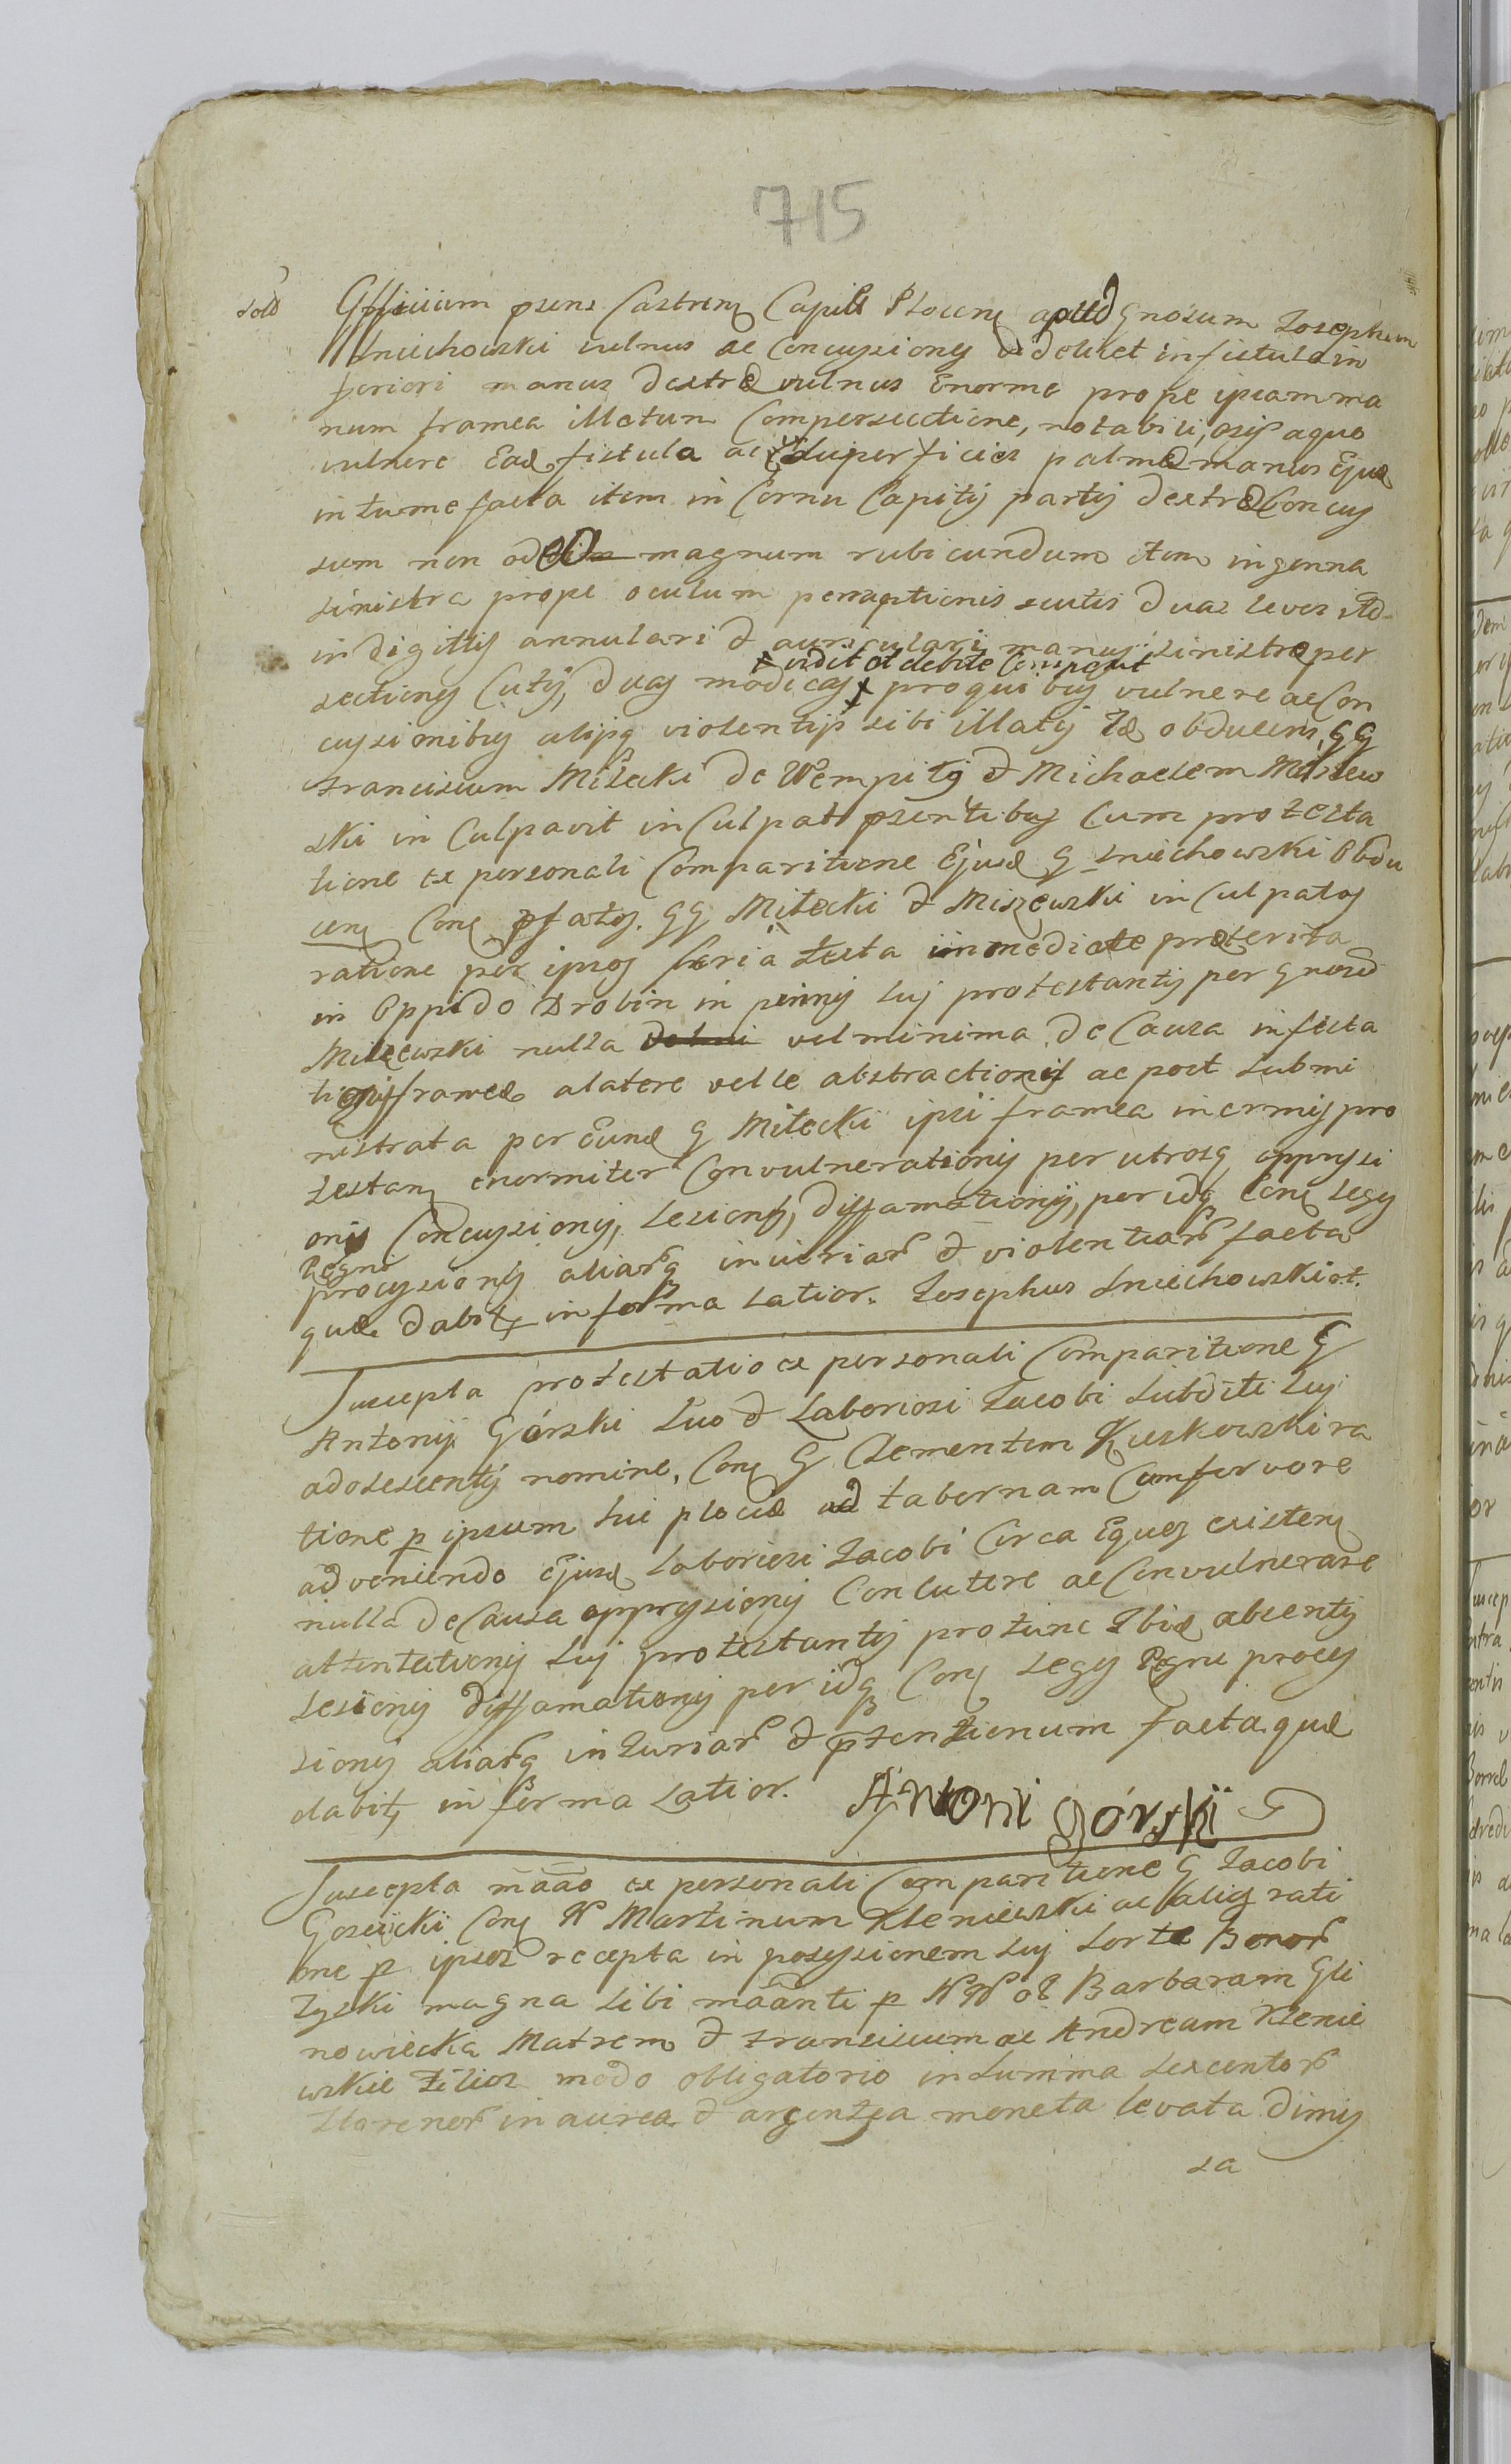 715
sold
Officium psens Castren Capitle Plocen apud Gnosum Josephum
Sniechowski vulnus ac concussiones videlicet in fistula in
feriori manus dextræ vulnus Enorme prope ipsam ma
num framea illatum cum persectione, notabili, osis a quo
vulnere Ead fistula ac superficies palmæ manus Ejusd
intumefacta item in Cornu Capitis partis dextræ Concus
sum non adeo magnum rubicundum item in genna
sinistra prope oculum perraptionis scutis duas leves ite
in digittis annulari & auriculari manus sinistræ per
x vidit et debite Comperit
sectiones Cutis, duas modicas x pro quibus vulnere ac Con
cussionibus alijsq violentijs sibi illatis Id obducens GG
Franciscum Miłecki de Wempiły & Michaelem Miszew
ski inculpavit inculpat psentibus Cum protesta
tione ex personali Comparitione Ejusd G Sniechowski Obdu
cens Con pfatos. GG Miłecki & Miszewski inculpatos
ratione per ipsos feria sexta immediate præterita
in Oppido Drobin in psinis sui protestantis per Gnosd
Miszewski nulla vel minima de Causa infesta
tionis frameæ a latere velle abstractionis ac post submi
nistrata per Eund G Miłecki ipsi framea inermis pro
testan enormiter Convulnerationis per utrosq oppressi
onis Concussionis, lesionis, diffamationis, per idq Con Leges
Regni
processionis aliarq iniuriar & violentiar facta
quæ dabit in forma latior. Josephus Sniechowski mt.
Suscepta protestatio ex personali Comparitione G
Antonij Górski suo & Laboriosi Jacobi Subditi Sui
adolescentis nomine, Con G Clementem Kuskowski ra
tione p ipsum hic Plociæ ad tabernam Cum fervore
adveniendo Ejusd Laboriosi Jacobi Circa Equos existen
nulla de Causa oppressionis Concutere ac Convulnerare
attentationis sui protestantis pro tunc Ibid absentis
lesionis diffamationis per idq Con Leges Regni proces
sionis aliarq injuriar & ptensionum facta quæ
dabit in forma latior. Antoni Górski
Suscepta mãão ex personali Comparitione G Jacobi
Gosciicki Con N Martinum Kleniewski ac alios rati
one p ipsos recepta in possessionem sui sorte Bonor
Zyski magna sibi mãanti p NN ol Barbaram Gli
nowiecka Matrem & Franciscum ac Andream Klenie
wskie Filios modo obligatorio in Summa sexcentor
Florenor in aurea & argentea moneta levata dimis
sa